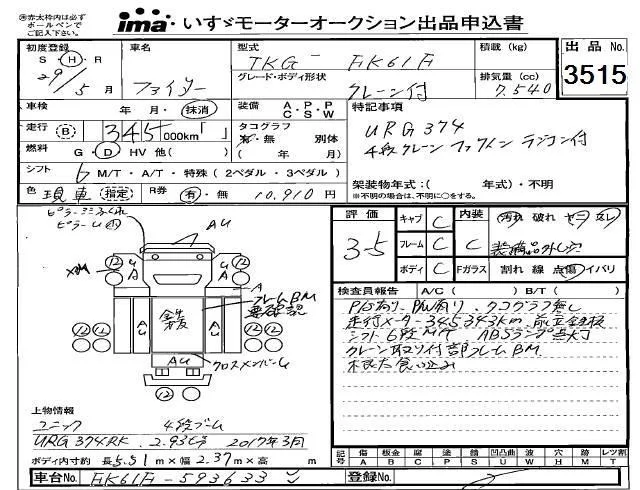 ㊟赤太枠内は必ず
ボールペンで
ご記入下さい。
ima いすゞモーターオークション出品申込書
初度登録
S・H・R
29/5月
車名
ファイター
型式
TKG - FK61F
積載 (kg)
出品 No.
3515
グレード・ボディ形状
クレーン付
排気量 (cc)
7.540
車検
年・月・抹消
装備 A・P・P
C・S・W
特記事項
URG374
4段クレーン フックイン ラジコン付
走行 B
345 000km「 」
タコグラフ
有・無 別体
( 年 月)
燃料 G・D HV 他( )
シフト 6 M/T・A/T・特殊(2ペダル・3ペダル)
架装物年式:( 年式)・不明
※不明の場合は、不明に○をする。
色 現車 指定 R券 有・無 10,910 円
評価
3-5
キャブ C
内装 C
汚れ 破れ ヤニ 匂い
フレーム C
装備品外し穴
ボディ C
Fガラス
割れ 線 点傷 イバリ
検査員報告 A/C( )B/T( )
P/S有り、P/W有り、タコグラフ無し
走行メーター345343km 前立全板
シフト6段M/T ABSランプ点灯
クレーン取り付部フレームBM
根太食い込み
AU
12
A
AU
錆
フレームBM
要確認
AU
クロスメンバーU
12
上物情報
ユニック 4段ブーム
URG374RK 2.93t 2017年3月
ボディ内寸約 長5.51m×幅2.37m×高 m
車台No. FK61F-593633
登録No.
記号
傷 A
板金 B
腐 C
塗 P
錆 S
凹凸曲 U
波 W
穴 H
跡 M
レツ割 T